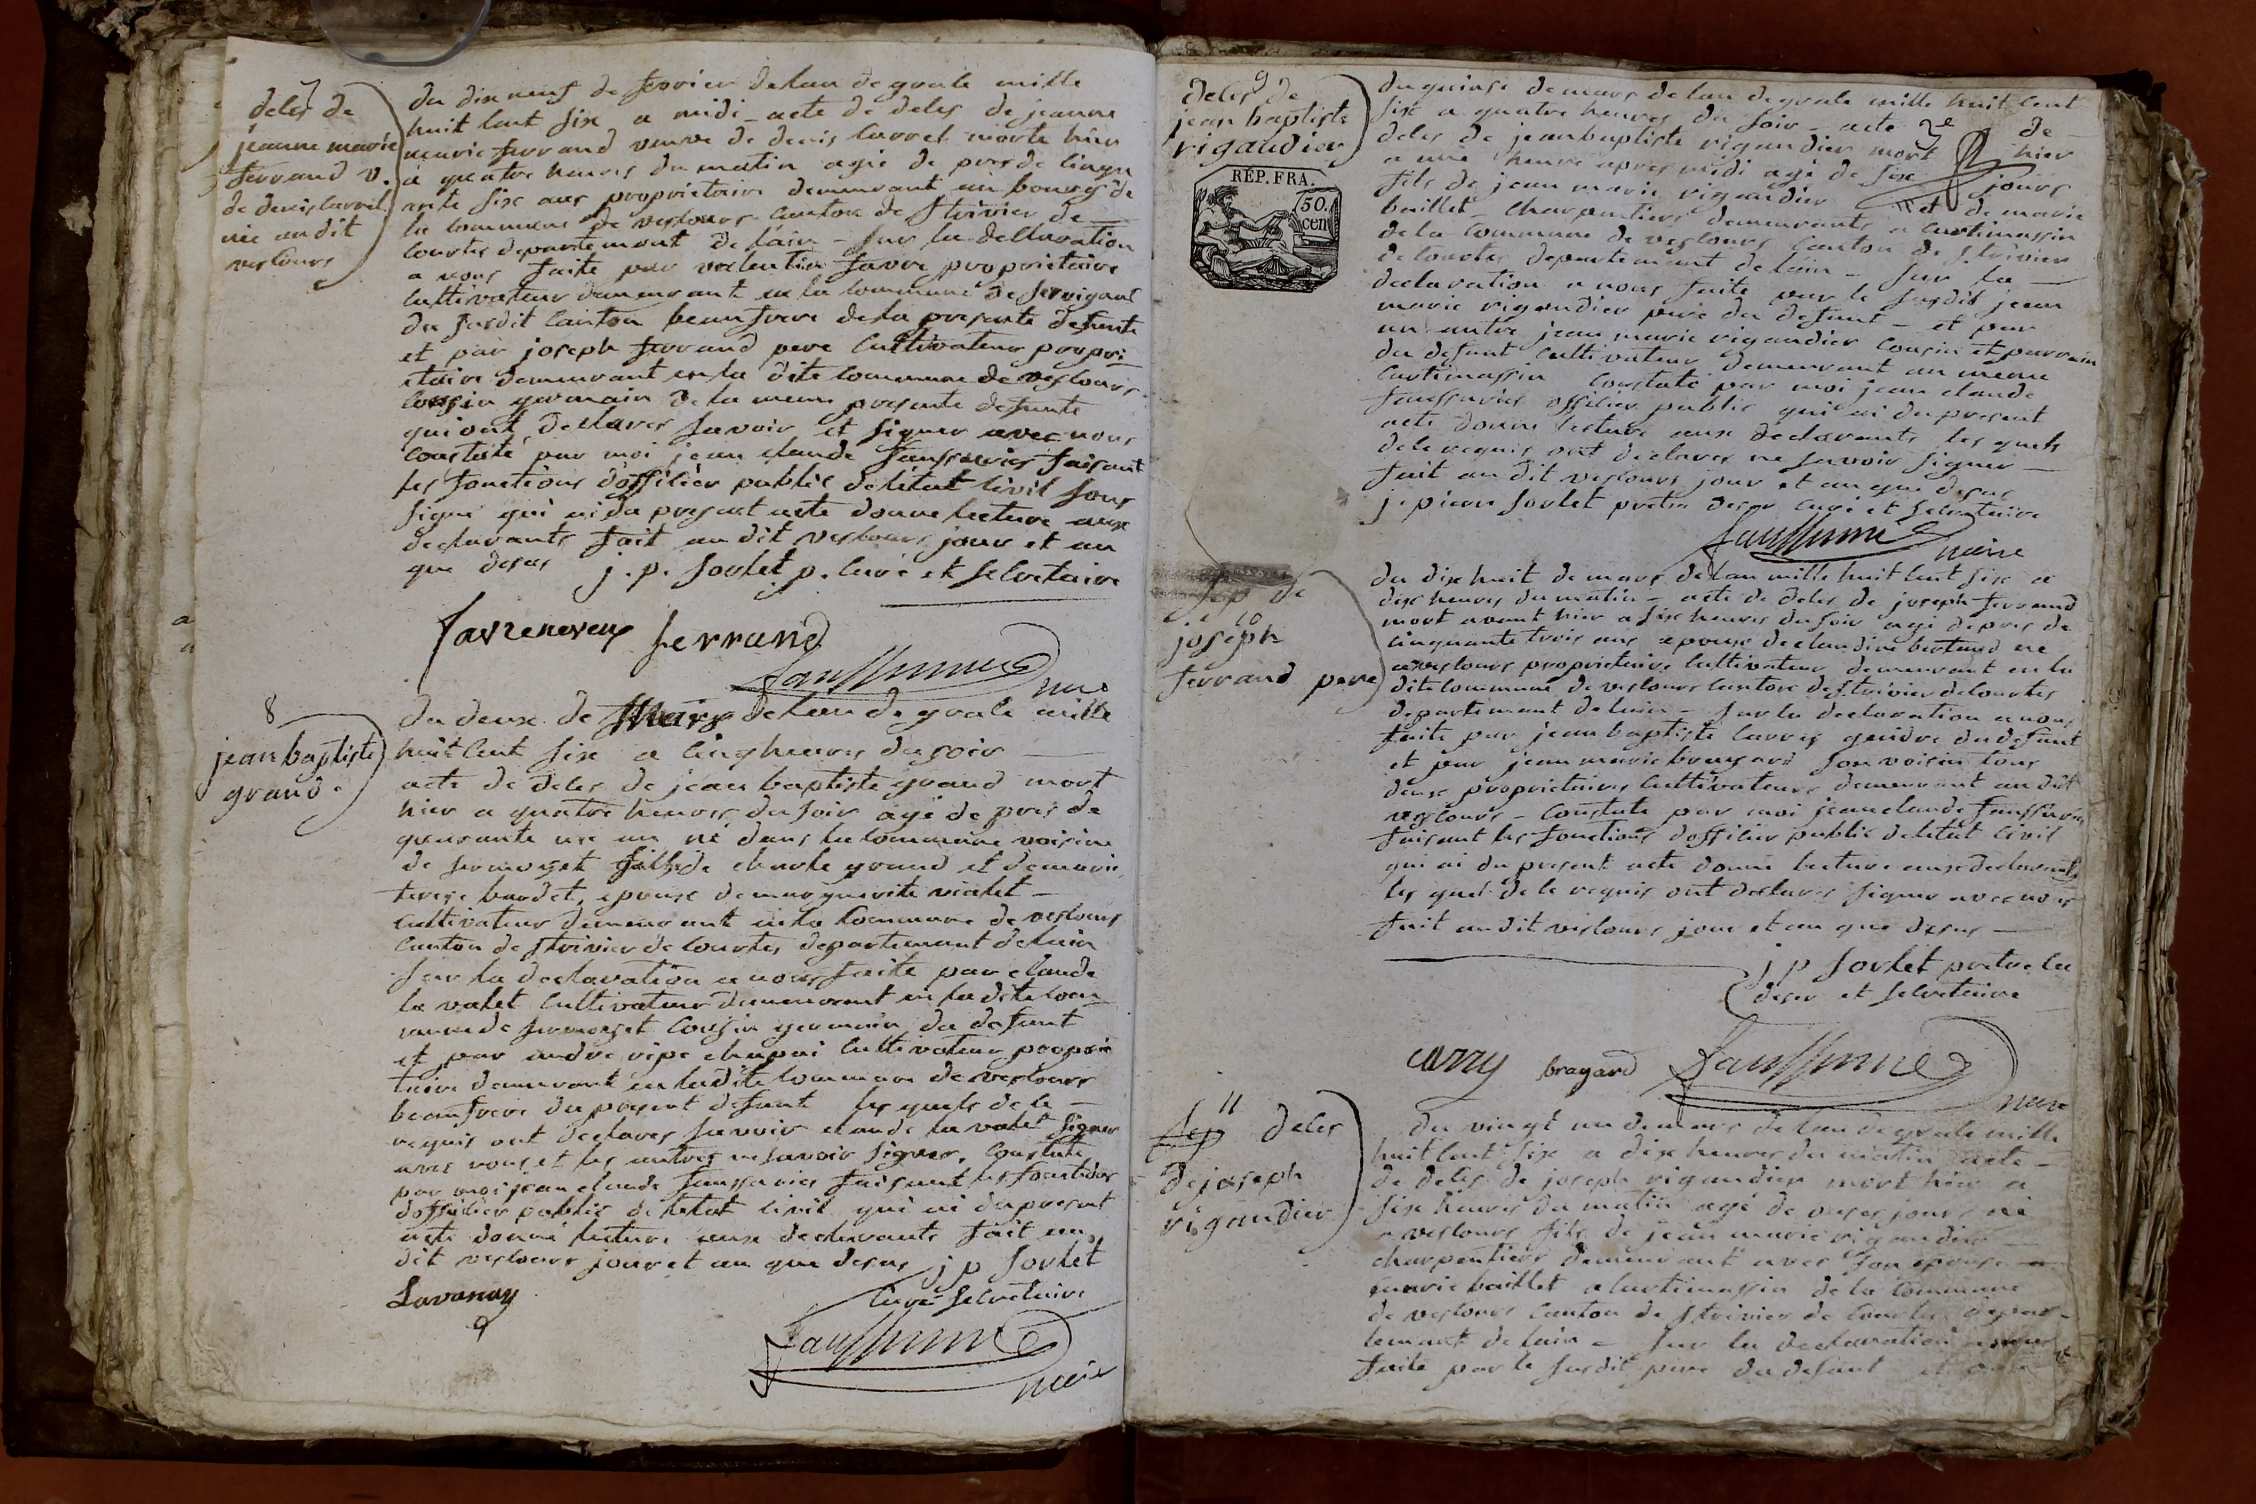 7
deles de
jeanne marie
ferrand v.
de denis carrel
née au dit
vescours
du dix neuf de fevrier de lan de grale mille
huit cent six a midi acte de deles de jeanne
marie ferrand veuve de denis carrel morte hier
a quatre heures du matin agée de pres de cinqu
ante six ans proprietaire demeurant au bourg de
la commune de vescours canton de st trivier de
courtes departement de lain - sur la declaration
a nous faite par valentin favre proprietaire
cultivateur demeurant en la commune de servignat
du susdit canton beaufrere de la presente defunte
et par joseph ferrand pere cultivateur propri
etaire demeurant en la dite commune de vescours
cousin germain de la meme presente defunte
qui ont declares savoir et signer avec nous
constaté par moi jean claude faussurier faisant
les fonctions dofficier public de letat civil sous
signé qui ai du present acte donne lecture aux
declarants fait au dit vescours jour et an
que desus j. p. sorlet p. curé et secretaire
ferrand
8
jean baptiste
grand
du deux de Mars de lan de grale mille
huit cent six a cinq heures du soir
acte de deles de jean baptiste grand mort
hier a quatre heures du soir agé de pres de
quarante un an né dans la commune voisine
de sermoyet fils de charle grand et de marie
terese bardet, epoux de marguerite violet -
cultivateur demeurant en la commune de vescours
canton de st trivier de courtes departement de lain
sur la declaration a nous faite par claude
la valet cultivateur demeurant en la dite com
mune de sermoyet cousin germain du defunt
et par andre ripe chapui cultivateur proprie
taire demeurant en la dite commune de vescours
beaufrere du present defunt les quels de le
requis ont declares savoir claude la valet signer
avec nous et les autres ne savoir signer, constaté
par moi jean claude faussurier faisant les fonctions
dofficier public de letat civil qui ai du present
acte donné lecture aux declarants fait au
dit vescours jour et an que desus j p sorlet
curé secretaire
maire
9
deles de
jean baptiste
rigaudier
RÉP. FRA.
50.
cen
du quinse de mars de lan de grale mille huit cent
six a quatre heures du soir - acte de
deles de jean baptiste rigaudier mort hier
a une heure apres midi agé de six jours
fils de jean marie rigaudier et de marie
baillet - charpentiers demeurants a curtimassin
de la commune de vescours canton de st trivier
de courtes departement de lain - sur la
declaration a nous faite par le susdit jean
marie rigaudier pere du defunt - et par
un autre jean marie rigaudier cousin et parrain
du defunt cultivateur demeurant au meme
curtimassin constaté par moi jean claude
faussurier officier public qui ai du present
acte donné lecture aux declarants les quels
de le requis ont declares ne savoir signer -
fait au dit vescours jour et an que desus
j. pierre sorlet pretre deser curé et secretaire
maire
10
joseph
ferrand pere
du dix huit de mars de lan mille huit cent six a
dix heures du matin - acte de deles de joseph ferrand
mort avant hier a six heures du soir agé de pres de
cinquante trois ans epoux de claudine bertaud né
a vescours proprietaire cultivateur demeurant en la
dite commune de vescours canton de st trivier de courtes
departement de lain - sur la declaration a nous
faite par jean baptiste carrey gendre du defunt
et par jean marie bragard son voisin tous
deux proprietaires cultivateurs demeurant au dit
vescours - constaté par moi jean claude faussurier
faisant les fonctions dofficier public de letat civil
qui ai du present acte donné lecture aux declarants
les quels de le requis ont declares signer avec nous
fait au dit vescours jour et an que desus -
j p sorlet pretre cu
deser et secretaire
carry bragard
maire
11
deles
de joseph
rigaudier
du vingt un de mars de lan de grale mille
huit cent six a dix heures du matin acte -
de deles de joseph rigaudier mort hier a
six heures du matin agé de jours né
a vescours fils de jean marie rigaudier
charpentier demeurant avec son epouse
marie baillet a curtimassin de la commune
de vescours canton de st trivier de courtes depar-
tement de lain - sur la declaration a nous
faite par le susdit pere du defunt et par